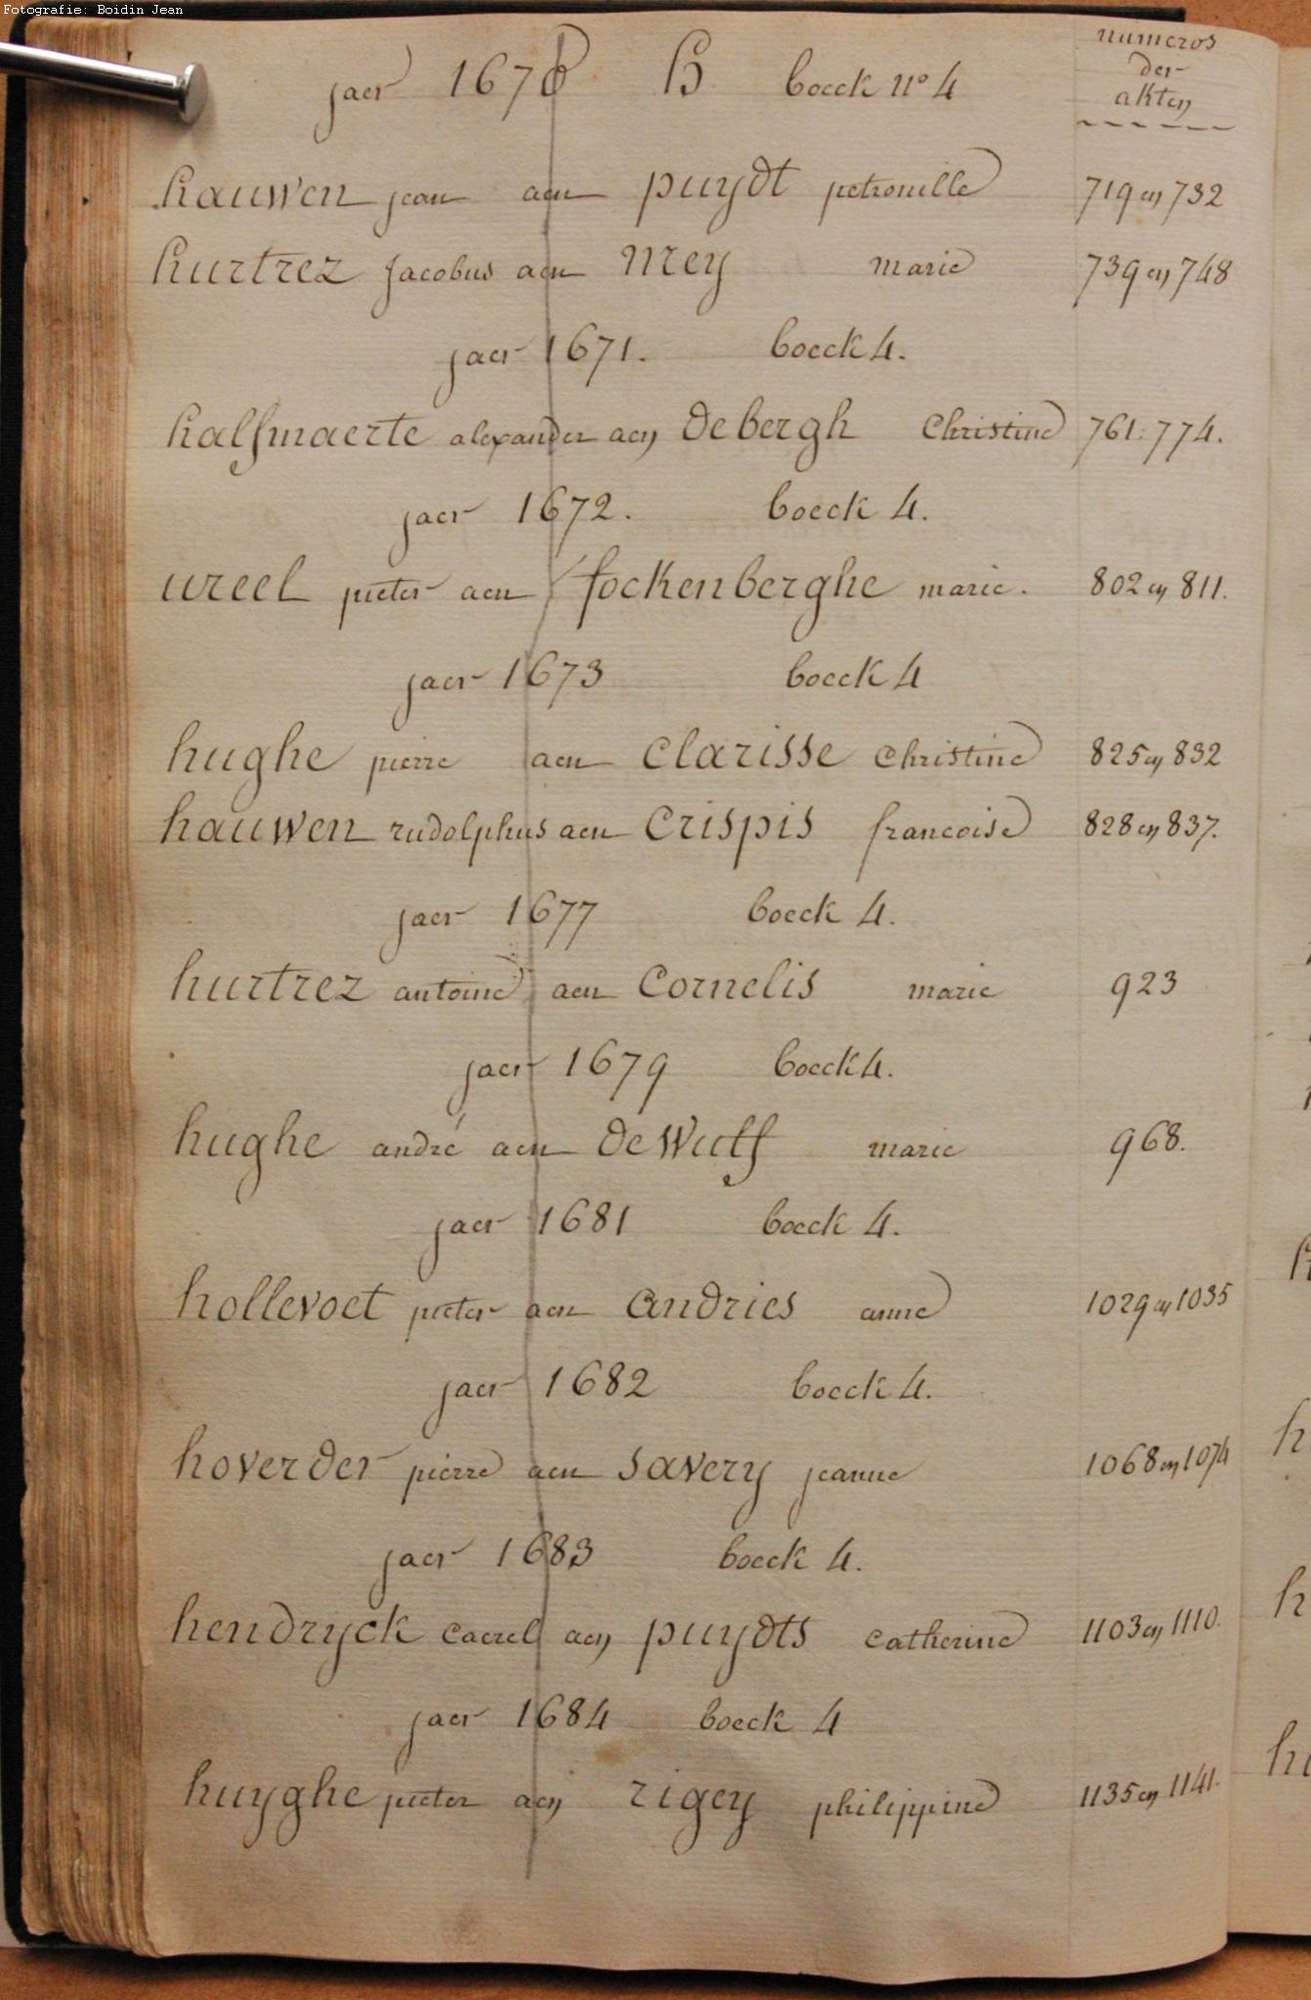 Fotografie: Boidin Jean
numeros
der
akten
jaer 1670 H boeck n° 4
hauwen jean aen puydt petronille 719 en 732
hurtrez jacobus aen mey marie 739 en 748
jaer 1671. boeck 4.
halfmaerte alexander aen de bergh Christine 761: 774.
jaer 1672. boeck 4.
ureel pieter aen fockenberghe marie. 802 en 811.
jaer 1673 boeck 4
hughe pierre aen Clarisse Christine 825 en 832
hauwen rudolphus aen Crispis francoise 828 en 837.
jaer 1677 boeck 4.
hurtrez antoine aen Cornelis marie 923
jaer 1679 boeck 4.
hughe andré aen de Wulf marie 968.
jaer 1681 boeck 4.
hollevoet pieter aen andries anne 1029 en 1035
jaer 1682 boeck 4.
hoverder pierre aen Savery jeanne 1068 en 1074
jaer 1683 boeck 4.
hendryck Caerel aen puydts Catherine 1103 en 1110.
jaer 1684 boeck 4
huyghe pieter aen rigey philippine 1135 en 1141.